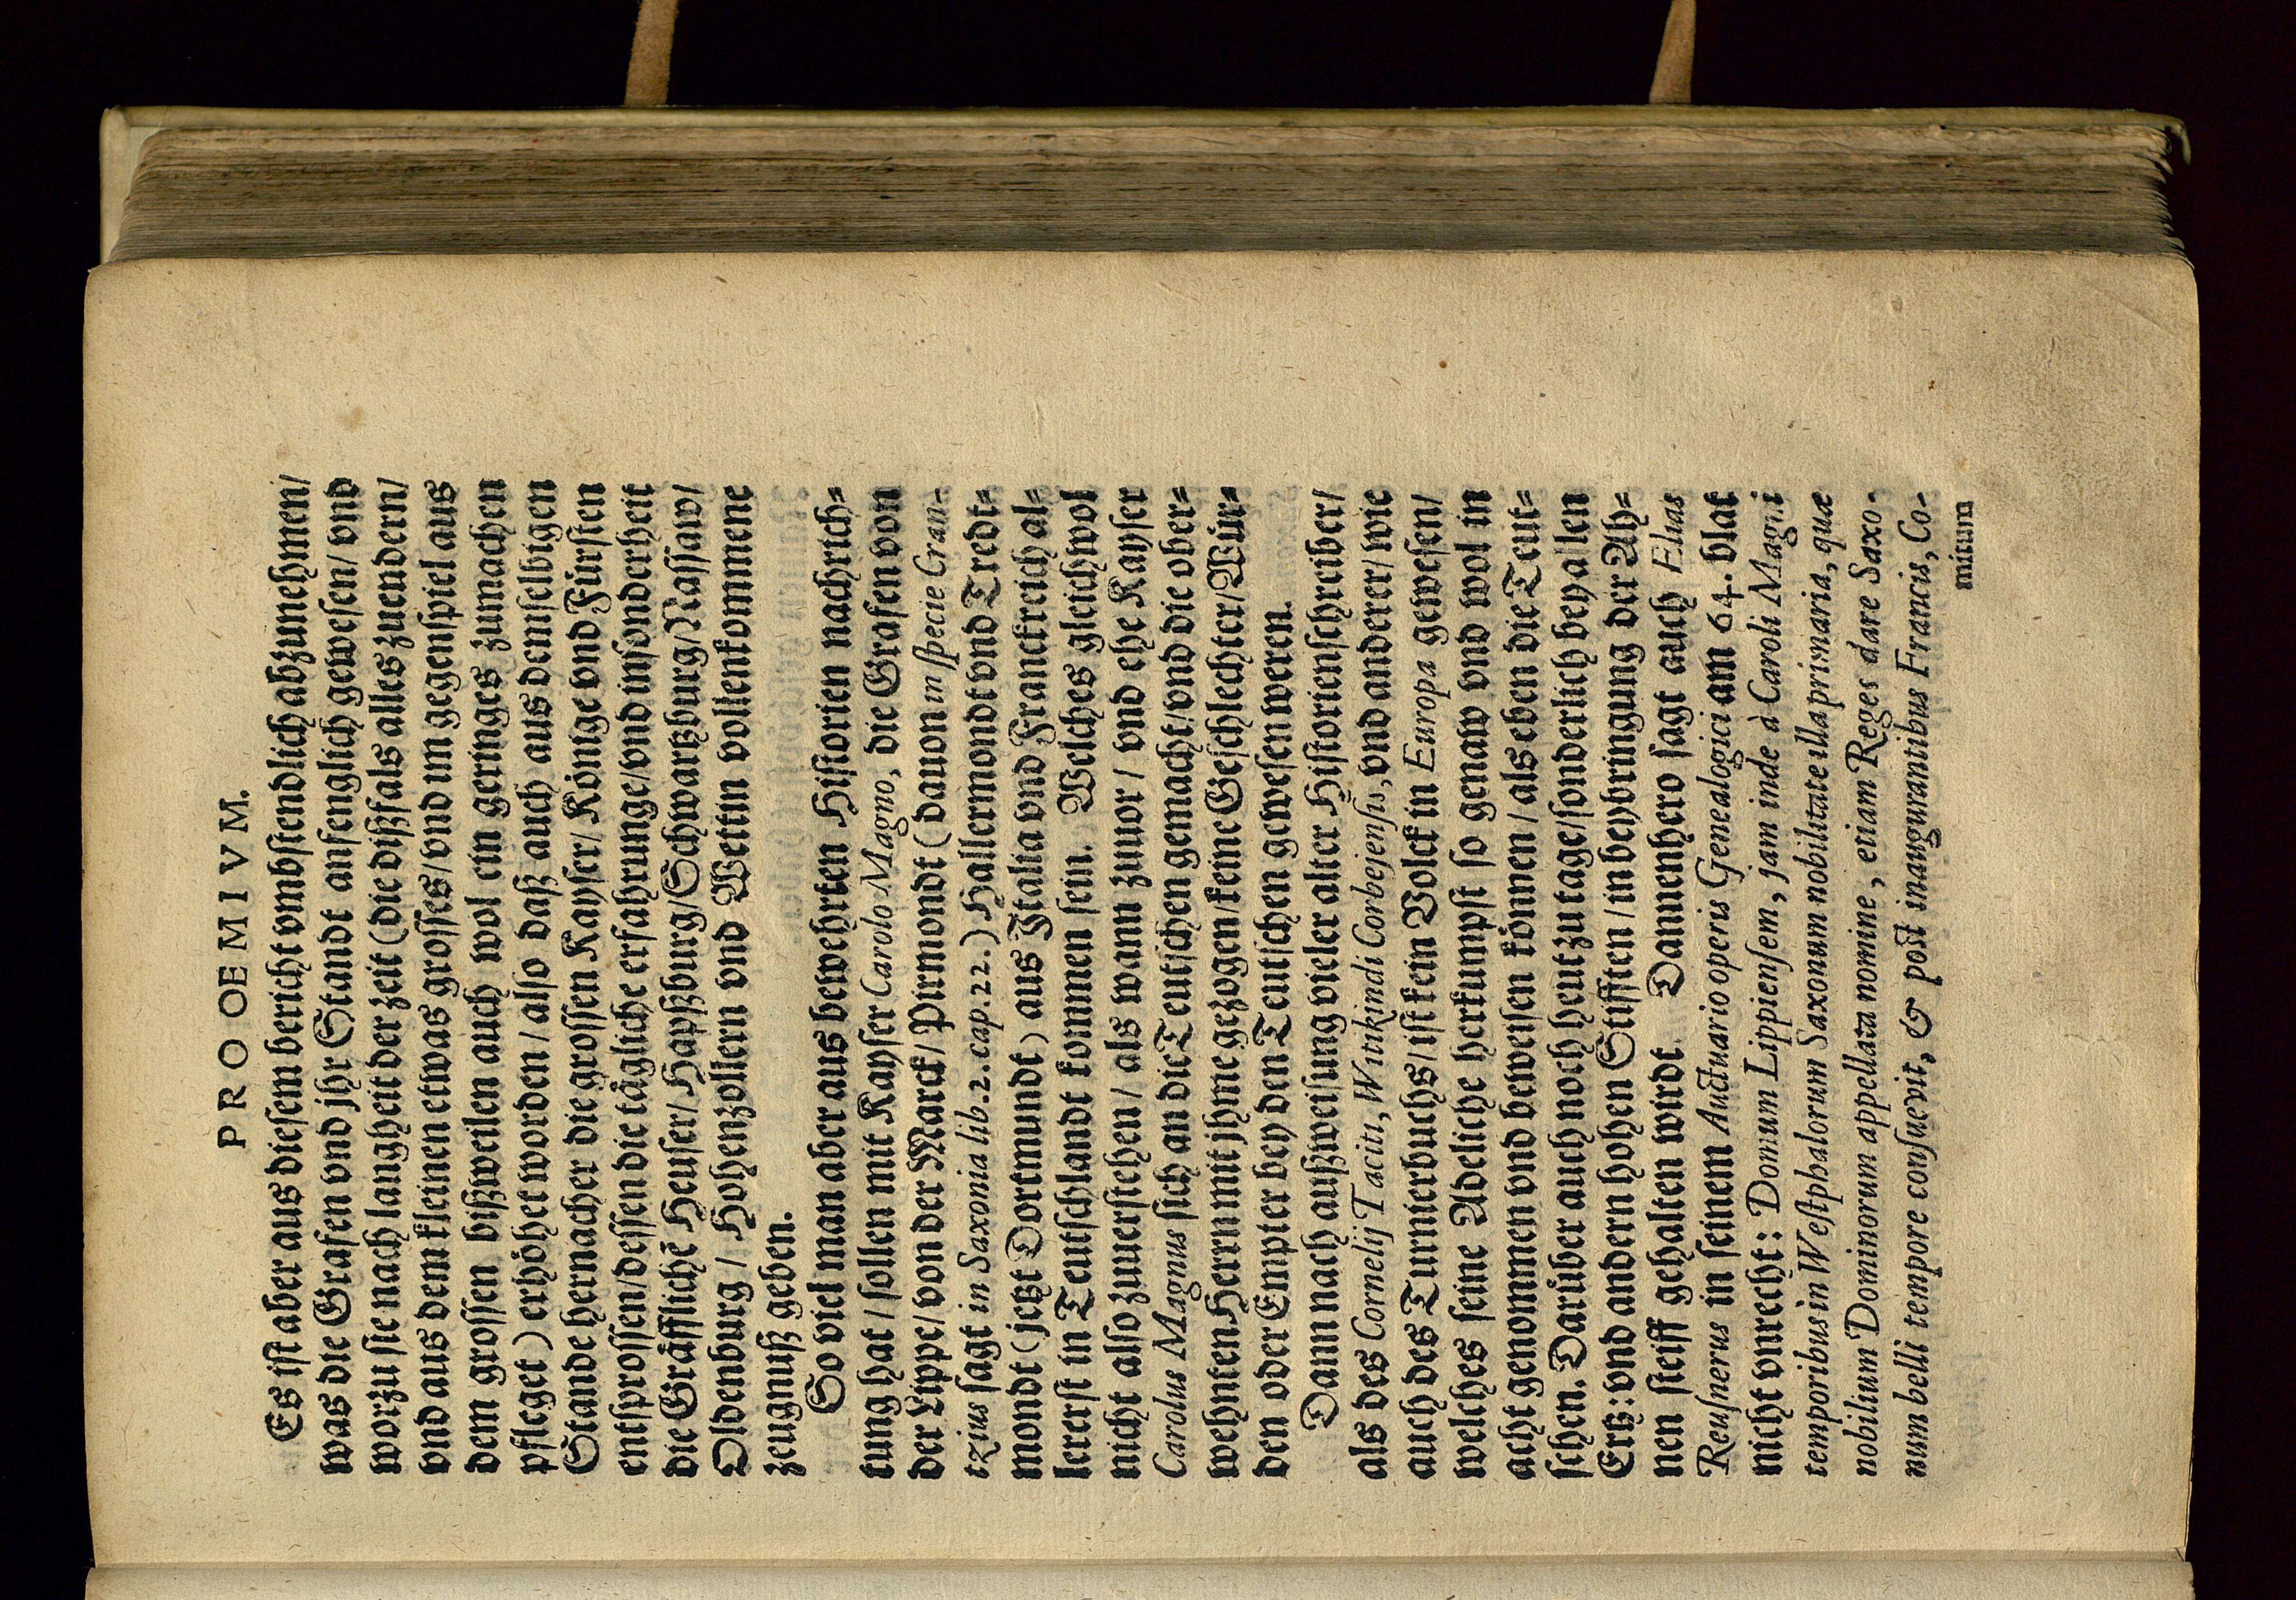 PROOEMIVM.
Es ist aber aus diesem bericht vmbstendlich abzunehmen/
was die Grafen vnd jhr Standt anfenglich gewesen/ vnd
worzu sie nach langheit der zeit (die dißfals alles zuendern/
vnd aus dem kleinen etwas grosses/ vnd im gegenspiel aus
dem grossen bißweilen auch wol ein geringes zumachen
pfleget) erhöhet worden/ also daß auch aus demselbigen
Stande hernacher die grossen Kayser/ Könige vnd Fürsten
entsprossen/ dessen die tägliche erfahrunge/ vnd insonderheit
die Gräffliche Heuser/ Hapßburg/ Schwartzburg/ Nassaw/
Oldenburg/ Hohenzollern vnd Wettin vollenkommene
zeugnuß geben.
So viel man aber aus bewehrten Historien nachrich=
tung hat/ sollen mit Kayser Carolo Magno, die Grafen von
der Lippe/ von der Marck/ Pirmondt (dauon in specie Cran-
tzius sagt in Saxonia lib.2.cap.22.) Hallermondt vnd Tredt=
mondt (jetzt Dortmundt) aus Italia vnd Franckreich al=
lererst in Teutschlandt kommen sein. Welches gleichwol
nicht also zuuerstehen/ als wann zuuor/ vnd ehe Kayser
Carolus Magnus sich an die Teutschen gemacht/ vnd die ober=
wehnten Herrn mit jhme gezogen/ keine Geschlechter/ Wür=
den oder Empter bey den Teutschen gewesen weren.
Dann nach außweisung vieler alter Historienschreiber/
als des Cornelij Taciti, Witikindi Corbejensis, vnd anderer/ wie
auch des Turnierbuchs/ ist kein Volck in Europa gewesen/
welches seine Adeliche herkumpft so genaw vnd wol in
acht genommen vnd beweisen können/ als eben die Teut=
schen. Darüber auch noch heut zu tage/ sonderlich bey allen
Ertz: vnd andern hohen Stifften/ in beybringung der Ah=
nen steiff gehalten wirdt. Dannenhero sagt auch Elias
Reusnerus in seinem Auctuario operis Genealogici am 64. blat
nicht vnrecht: Domum Lippiensem, jam inde à Caroli Magni
temporibus in Westphalorum Saxonum nobilitate illa primaria, quæ
nobilium Dominorum appellata nomine, etiam Reges dare Saxo-
num belli tempore consuevit, & post inaugurantibus Francis, Co-
mitum